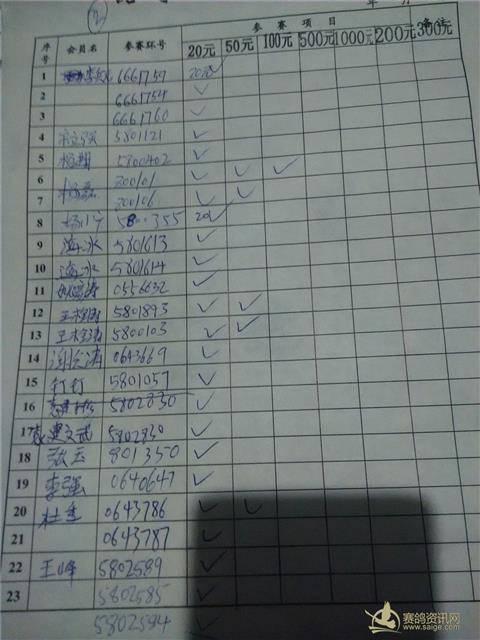 2
年 月
序号 会员名 参赛环号 参赛项目 备注
20元 50元 100元 500元 1000元 200元 300元
1 6661759 20元 ✓
2 6661754 ✓
3 6661760 ✓
4 5801121 ✓
5 5800402 ✓
6 200101 ✓ ✓ ✓
7 200106 ✓ ✓
8 5800355 20 ✓
9 海冰 5801613 ✓
10 海冰 5801614 ✓
11 0556632 ✓
12 5801893 ✓ ✓
13 5800103 ✓ ✓
14 0643669 ✓
15 钉钉 5801057 ✓
16 5802830 ✓
17 5802830 ✓
18 张玉 801350 ✓
19 李强 0640647 ✓
20 0643786 ✓ ✓
21 0643787 ✓
22 王峰 5802589 ✓
23 5802585 ✓
5802584 ✓
赛鸽资讯网
www.saige.com